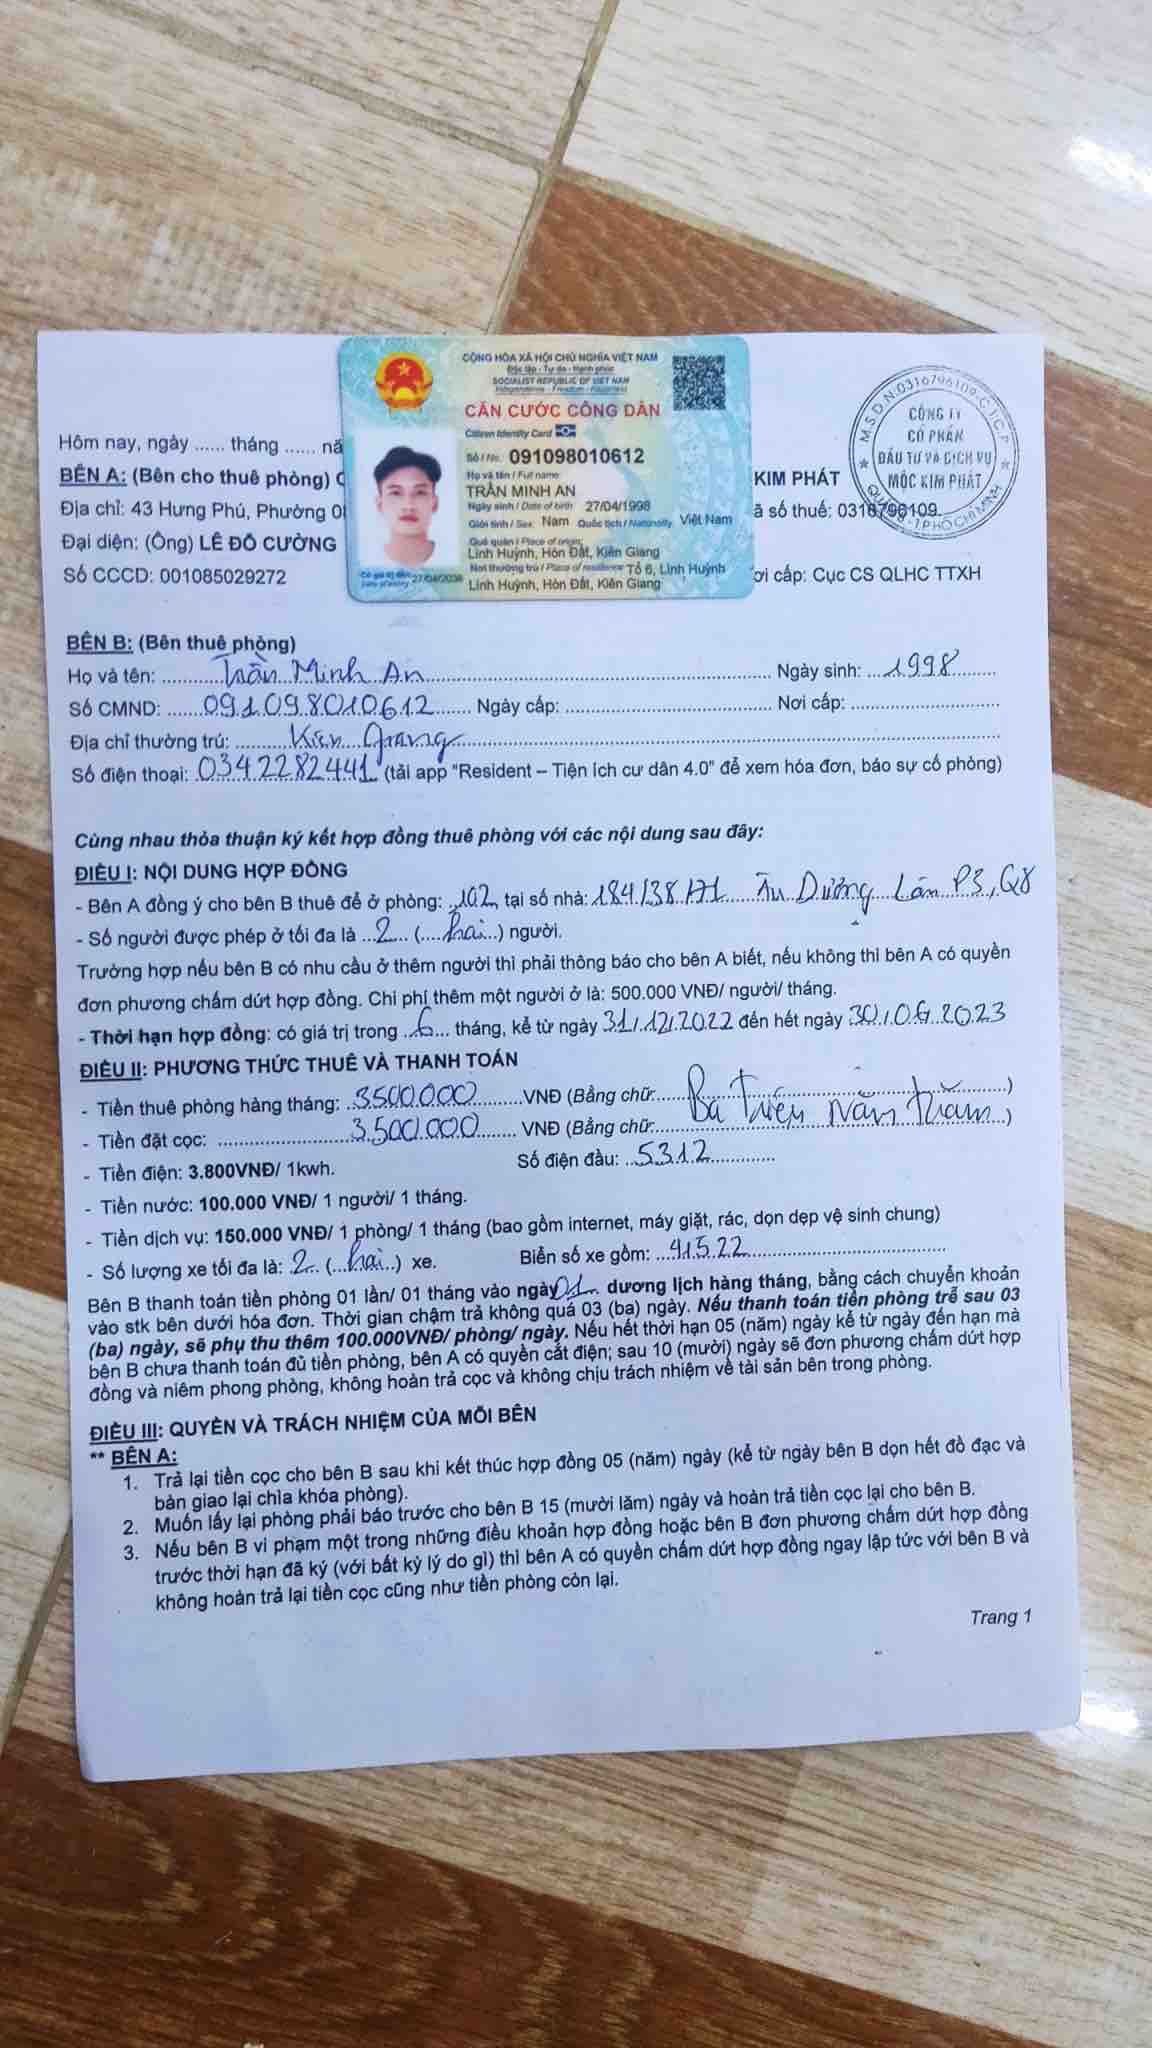 CỘNG HÒA XÃ HỘI CHỦ NGHĨA VIỆT NAM
Độc lập - Tự do - Hạnh phúc
SOCIALIST REPUBLIC OF VIET NAM
Independence - Freedom - Happiness
CĂN CƯỚC CÔNG DÂN
Citizen Identity Card
Số / No. 091098010612
Họ và tên / Full name
TRẦN MINH AN
Ngày sinh / Date of birth 27/04/1998
Giới tính / Sex Nam Quốc tịch / Nationality Việt Nam
Quê quán / Place of origin
Linh Huỳnh, Hòn Đất, Kiên Giang
Nơi thường trú / Place of residence Tổ 6, Linh Huỳnh
Linh Huỳnh, Hòn Đất, Kiên Giang
Có giá trị đến
Date of expiry 27/04/2038
M.S.D.N:0316796109-C.T.C.P
CÔNG TY
CỔ PHẦN
ĐẦU TƯ VÀ DỊCH VỤ
MỘC KIM PHÁT
QUẬN 8 - T.P HỒ CHÍ MINH
Hôm nay, ngày ...... tháng ...... nă
BÊN A: (Bên cho thuê phòng) C KIM PHÁT
Địa chỉ: 43 Hưng Phú, Phường 0 ã số thuế: 0316796109
Đại diện: (Ông) LÊ ĐÔ CƯỜNG
Số CCCD: 001085029272 ơi cấp: Cục CS QLHC TTXH
BÊN B: (Bên thuê phòng)
Họ và tên: Trần Minh An Ngày sinh: 1998
Số CMND: 091098010612 Ngày cấp: Nơi cấp:
Địa chỉ thường trú: Kiên Giang
Số điện thoại: 0342282441 (tải app "Resident – Tiện ích cư dân 4.0" để xem hóa đơn, báo sự cố phòng)
Cùng nhau thỏa thuận ký kết hợp đồng thuê phòng với các nội dung sau đây:
ĐIỀU I: NỘI DUNG HỢP ĐỒNG
- Bên A đồng ý cho bên B thuê để ở phòng: 102 tại số nhà: 184/38 Âu Dương Lân P3, Q8
- Số người được phép ở tối đa là 2 (hai) người.
Trường hợp nếu bên B có nhu cầu ở thêm người thì phải thông báo cho bên A biết, nếu không thì bên A có quyền
đơn phương chấm dứt hợp đồng. Chi phí thêm một người ở là: 500.000 VNĐ/ người/ tháng.
- Thời hạn hợp đồng: có giá trị trong 6 tháng, kể từ ngày 31/12/2022 đến hết ngày 30/06/2023
ĐIỀU II: PHƯƠNG THỨC THUÊ VÀ THANH TOÁN
- Tiền thuê phòng hàng tháng: 3500.000 VNĐ (Bằng chữ: Ba Triệu Năm Trăm)
- Tiền đặt cọc: 3.500.000 VNĐ (Bằng chữ: )
- Tiền điện: 3.800VNĐ/ 1kwh. Số điện đầu: 5312
- Tiền nước: 100.000 VNĐ/ 1 người/ 1 tháng.
- Tiền dịch vụ: 150.000 VNĐ/ 1 phòng/ 1 tháng (bao gồm internet, máy giặt, rác, dọn dẹp vệ sinh chung)
- Số lượng xe tối đa là: 2 (hai) xe. Biển số xe gồm: 41522
Bên B thanh toán tiền phòng 01 lần/ 01 tháng vào ngày 01 dương lịch hàng tháng, bằng cách chuyển khoản
vào stk bên dưới hóa đơn. Thời gian chậm trả không quá 03 (ba) ngày. Nếu thanh toán tiền phòng trễ sau 03
(ba) ngày, sẽ phụ thu thêm 100.000VNĐ/ phòng/ ngày. Nếu hết thời hạn 05 (năm) ngày kể từ ngày đến hạn mà
bên B chưa thanh toán đủ tiền phòng, bên A có quyền cắt điện; sau 10 (mười) ngày sẽ đơn phương chấm dứt hợp
đồng và niêm phong phòng, không hoàn trả cọc và không chịu trách nhiệm về tài sản bên trong phòng.
ĐIỀU III: QUYỀN VÀ TRÁCH NHIỆM CỦA MỖI BÊN
** BÊN A:
1. Trả lại tiền cọc cho bên B sau khi kết thúc hợp đồng 05 (năm) ngày (kể từ ngày bên B dọn hết đồ đạc và
bàn giao lại chìa khóa phòng).
2. Muốn lấy lại phòng phải báo trước cho bên B 15 (mười lăm) ngày và hoàn trả tiền cọc lại cho bên B.
3. Nếu bên B vi phạm một trong những điều khoản hợp đồng hoặc bên B đơn phương chấm dứt hợp đồng
trước thời hạn đã ký (với bất kỳ lý do gì) thì bên A có quyền chấm dứt hợp đồng ngay lập tức với bên B và
không hoàn trả lại tiền cọc cũng như tiền phòng còn lại.
Trang 1